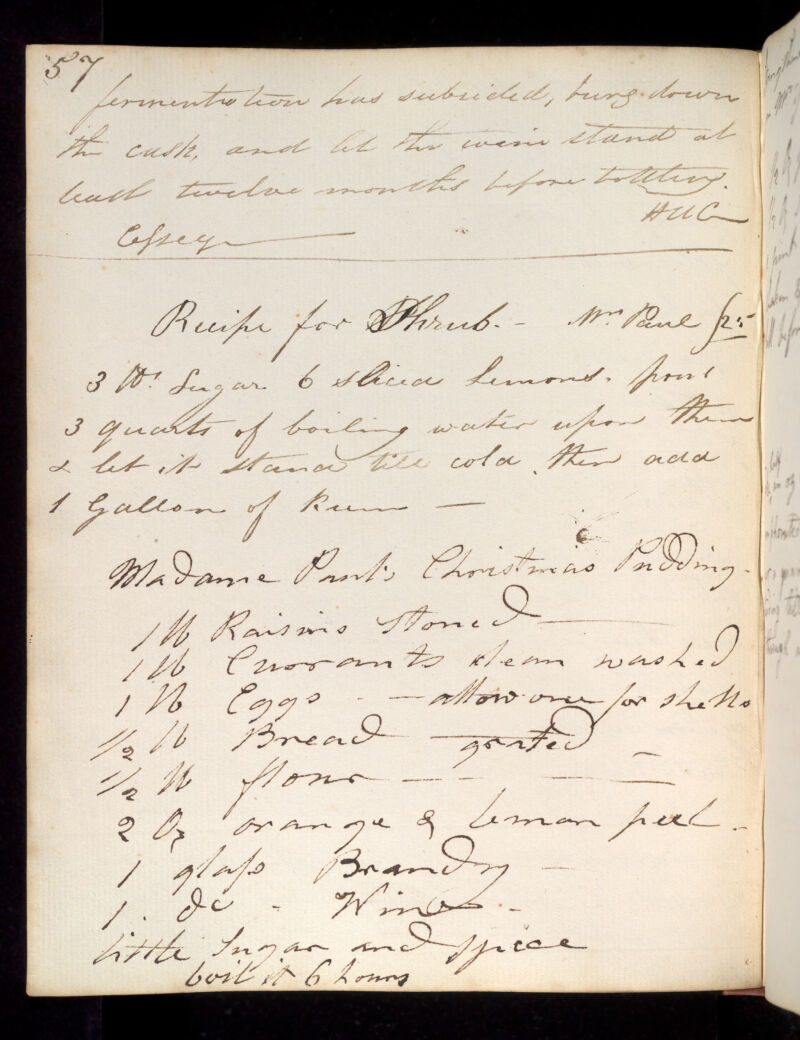 57
fermentation has subsided, bung down
the cask, and let the wine stand at
least twelve months before bottling.
HUC
Recipe for Shrub. - Mrs. Paul
3 lbs. Sugar 6 sliced Lemons. pour
3 quarts of boiling water upon them
& let it stand till cold then add
1 Gallon of Rum —
Madame Paul's Christmas Pudding -
1 lb Raisins Stoned —
1 lb Currants clean washed
1 lb Eggs - - allow one for shells
1/2 lb Bread — grated —
1/2 lb flour — — — —
2 Oz orange & lemon peel -
1 glass Brandy —
1. do - Wine -
little Sugar and spice
boil it 6 hours